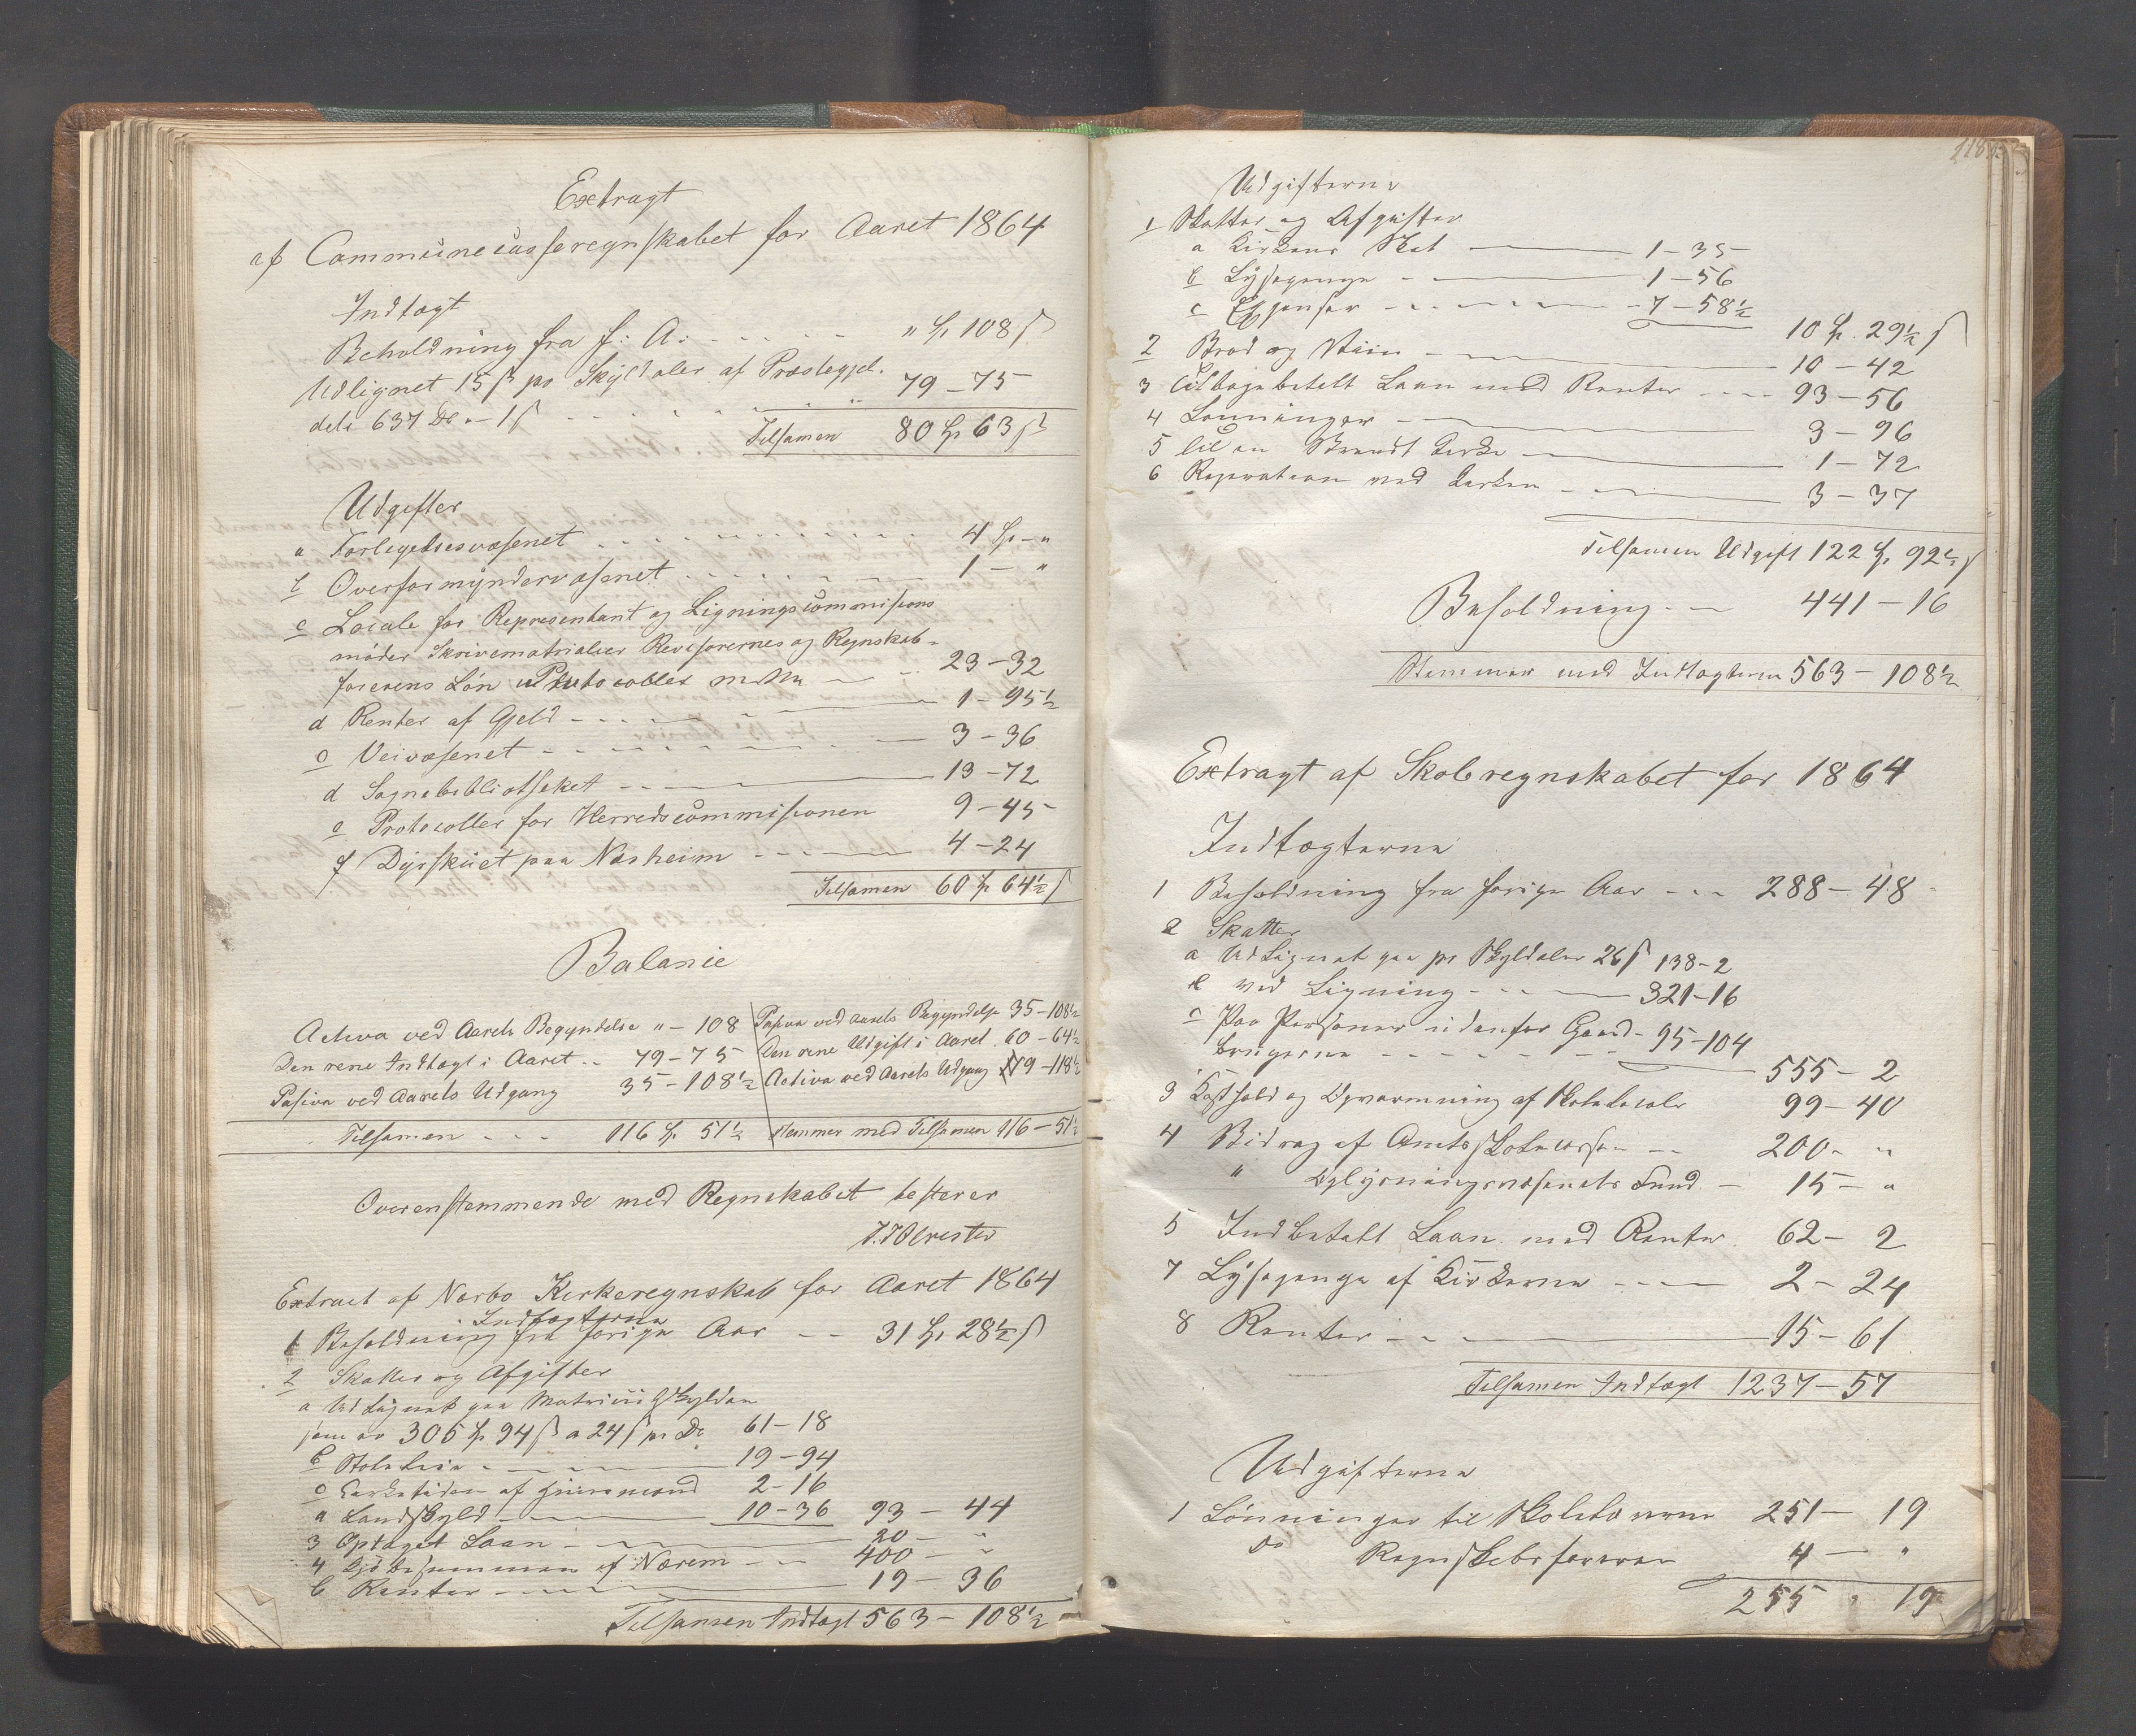 Extragt
af Communecasseregnskabet for Aaret 1864
Indtægt
Beholdning fra f: A: - - - - - " Sp 108 ß
Udlignet 15 ß pr Skyldaler af Præstegjel-
dets 637 Dl - 1 ß - - - - - - 79-75
Tilsamen 80 Sp 63 ß
Udgifter
a Forligelsesvæsenet - - - - - 4 Sp - "
b Overformyndervæsenet - - - - - 1 - "
c Locale for Representant og Ligningscommissions
möder Skrivematrialier Revisorernes og Regnskab-
förerens Lön Protocoller m M - - 23-32
d Renter af Gjeld - - - - 1-95½
e Veivæsenet - - - - - 3-36
d Sognebibliotheket - - - 13-72
e Protocoller for Herredscommissionen 9-45
f Dyrskuet paa Næsheim - - - 4-24
Tilsamen 60 Sp 64½ ß
Balance
Activa ved Aarets Begyndelse " - 108 Passiva ved aarets Begyndelse 35-108½
Den rene Indtægt i Aaret - - 79-75 Den rene Udgift i Aaret 60-64½
Pasiva ved Aarets Udgang 35-108½ Activa ved Aarets Udgang 19-118½
Tilsamen - - - 116 Sp 51½ Stemmer med Tilsamen 116-51½
Overenstemmende med Regnskabet testerer
Extract af Nærbo Kirkeregnskab for Aaret 1864
Indtægterne
1 Beholdning fra forige Aar - - 31 Sp 28½ ß
2 Skatter og Afgifter
a Udlignet paa Matriculskylden
som er 305 Sp 94 ß a 24 ß pr Dl 61-18
b Stoleleie - - - 19-94
c Kirketiden af 2-16
d Landskyld - - - 10-36 93-44
3 Optaget Laan - - - 20 - "
4 af Nærem - - 400 - "
6 Renter - - - - 19-36
Tilsamen Indtægt 563-108½
218
Udgifterne
1 Skatter og Afgifter
a Kirkens Skat - - 1-35
b Lysepenge - - 1-56
c Expenser - - - - 7-58½
10 Sp. 29½ ß
2 Brød og Viin - - 10-42
3 Tilbagebetalt Laan med Renter - - - 93-56
4 Lønninger - - 3-96
5 Til en Brændt Kirke - - 1-72
6 Reperation ved Kirken - - 3-37
Tilsamen Udgift 122 Sp 92½ ß
Beholdning - - 441-16
Stemmer med Indtægterne 563-108½
Extragt af Skoleregnskabet for 1864
Indtægterne
1 Beholdning fra forige Aar - - - 288-48
2 Skatter
a Udlignet paa pr Skyldaler 26 ß 138-2
b ved Ligning - - - 321-16
c Paa Personer udenfor Gaard- 95-104
brugerne - - - - - 555-2
3 Kosthold og Opvarmning af Skolelocaler 99-40
4 Bidrag af Amtsskolecassen - - 200 - "
" Oplysningsvæsenets Fond - 15 - "
5 Indbetalt Laan med Renter 62-2
7 Lysepenge af Kirkerne - - - 2-24
8 Renter - - - 15-61
Tilsamen Indtægt 1237-57
Udgifterne
1 Lönninger til Skolelærerne 251-19
Do Regnskabsføreren 4 - "
255 " 19